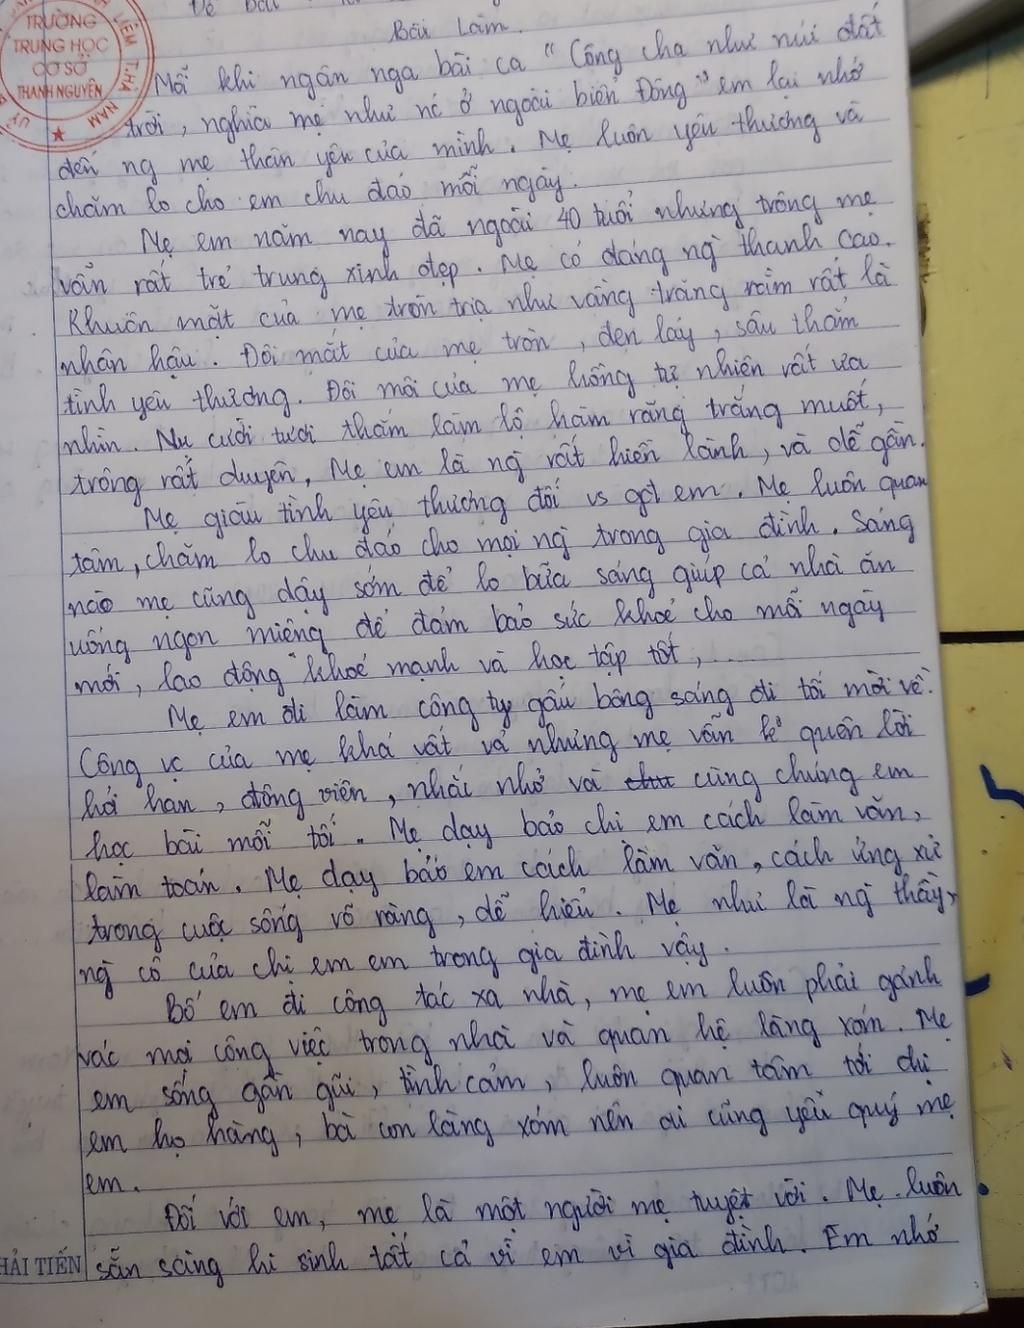 TRƯỜNG
TRUNG HỌC
CƠ SỞ
THANH NGUYÊN
LIÊM T.HÀ NAM
Đề bài
Bài Làm.
Mỗi khi ngân nga bài ca "Công cha như núi đất
trời, nghĩa mẹ như nc ở ngoài biển Đông" em lại nhớ
đến ng mẹ thân yêu của mình. Mẹ luôn yêu thương và
chăm lo cho em chu đáo mỗi ngày.
Mẹ em năm nay đã ngoài 40 tuổi nhưng trông mẹ
vẫn rất trẻ trung xinh đẹp. Mẹ có dáng ng thanh cao.
Khuôn mặt của mẹ tròn trịa như vầng trăng rằm rất là
nhân hậu. Đôi mắt của mẹ tròn, đen láy, sâu thẳm
tình yêu thương. Đôi môi của mẹ hồng tự nhiên rất ưa
nhìn. Nụ cười tươi thắm làm lộ hàm răng trắng muốt,
trông rất duyên, Mẹ em là ng rất hiền lành, và dễ gần.
Mẹ giàu tình yêu thương đối vs gđ em. Mẹ luôn quan
tâm, chăm lo chu đáo cho mọi ng trong gia đình. Sáng
nào mẹ cũng dậy sớm để lo bữa sáng giúp cả nhà ăn
uống ngon miệng để đảm bảo sức khoẻ cho mỗi ngày
mới, lao động khoẻ mạnh và học tập tốt,...
Mẹ em đi làm công ty gấu bông sáng đi tối mới về.
Công vc của mẹ khá vất vả nhưng mẹ vẫn k quên lời
hỏi han, động viên, nhắc nhở và cùng chúng em
học bài mỗi tối. Mẹ dạy bảo chị em cách làm văn,
làm toán. Mẹ dạy bảo em cách làm văn, cách ứng xử
trong cuộc sống rõ ràng, dễ hiểu. Mẹ như là ng thầy,
ng cô của chị em em trong gia đình vậy.
Bố em đi công tác xa nhà, mẹ em luôn phải gánh
vác mọi công việc trong nhà và quan hệ làng xóm. Mẹ
em sống gần gũi, tình cảm, luôn quan tâm tới chị
em họ hàng, bà con làng xóm nên ai cũng yêu quý mẹ
em.
Đối với em, mẹ là một người mẹ tuyệt vời. Mẹ luôn
sẵn sàng hi sinh tất cả vì em vì gia đình. Em nhớ
HẢI TIẾN